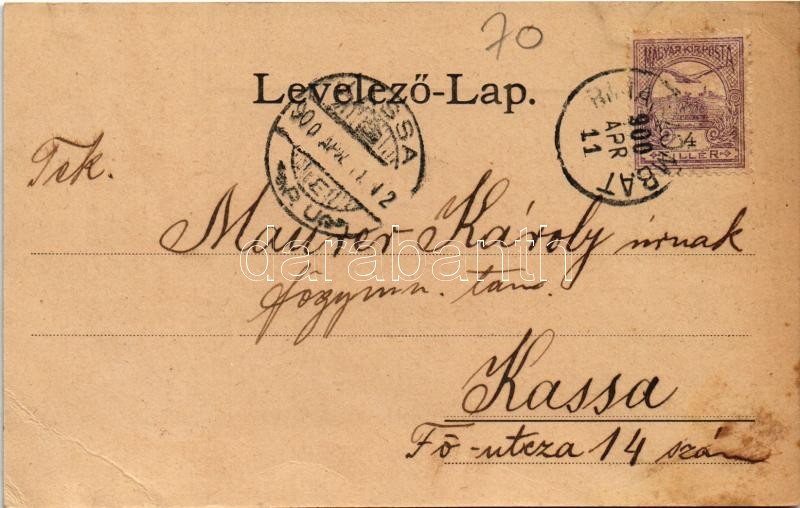 70
MAGYAR KIR. POSTA
Levelező-Lap.
FILLÉR
900
APR
11
KASSA
900 APR. 12
P.U.
Tek.
Maurer Károly úrnak
főgymn. tan.
darabanth
Kassa
Fő-utcza 14 szám